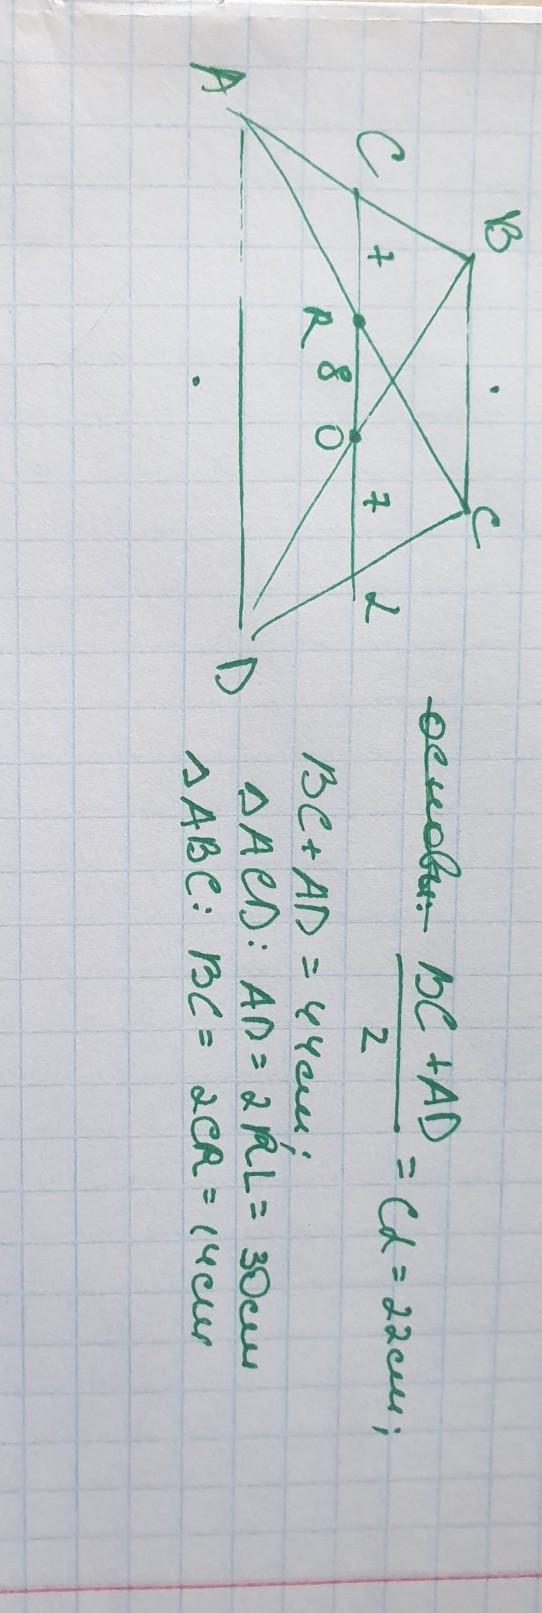 B C
C 7 R 8 O 7 L
A D
основи: BC + AD / 2 = CL = 22см;
BC + AD = 44см;
△ACD: AD = 2RL = 30см
△ABC: BC = 2CR = 14см